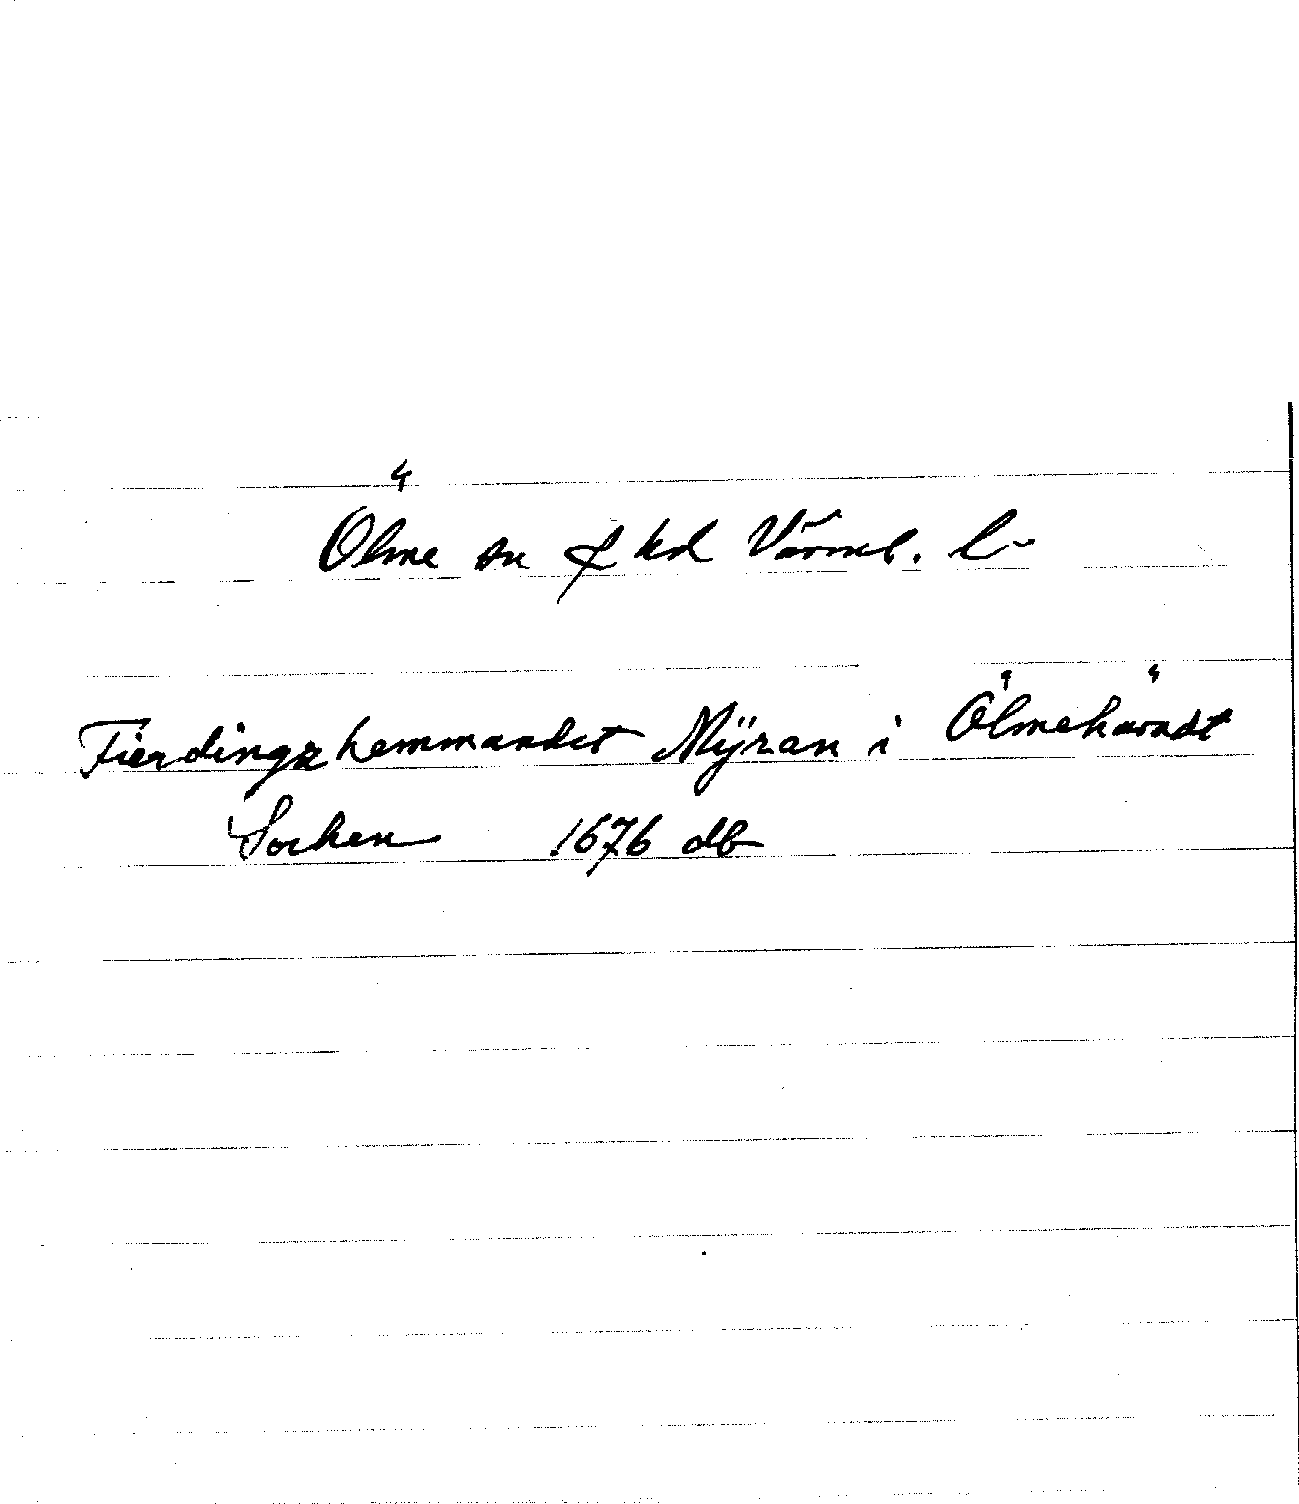 Ölme sn & hd Värml. l-
Fierdingzhemmandet Mÿran i Ölmehäradt
Sochen 1676 db